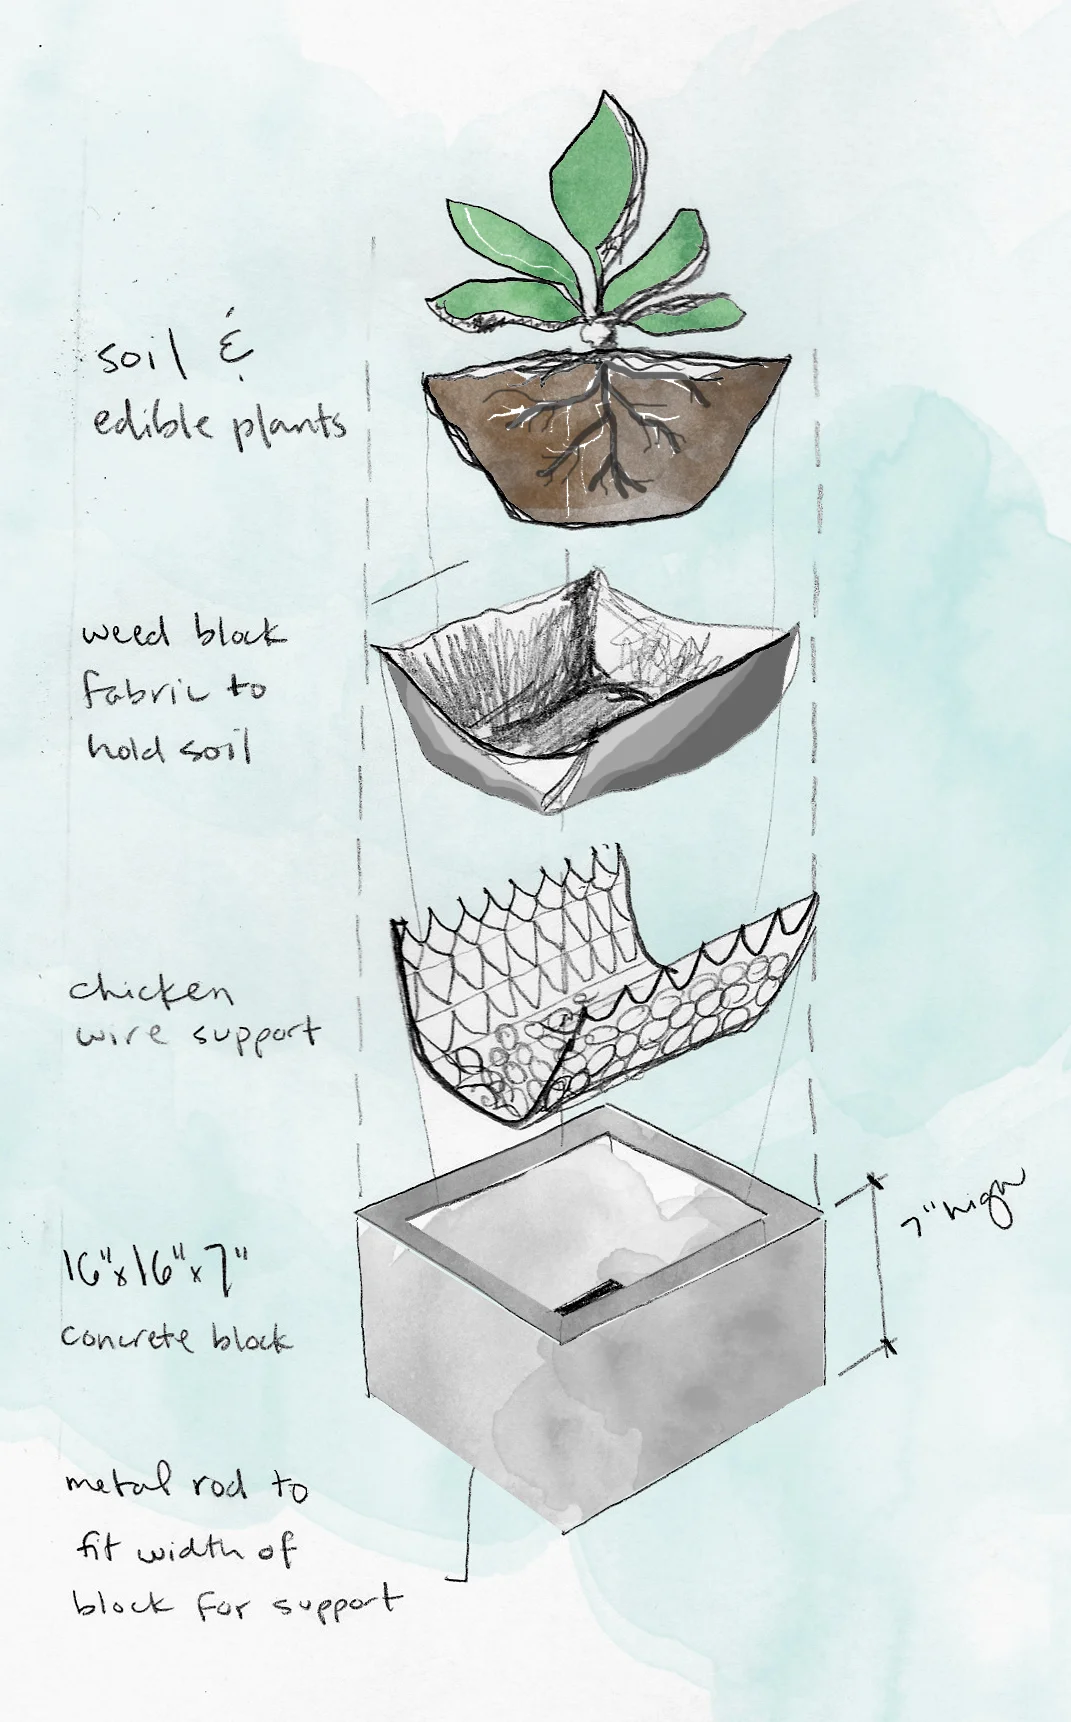 soil &
edible plants
weed block
fabric to
hold soil
chicken
wire support
16"x16"x7"
concrete block
7" high
metal rod to
fit width of
block for support